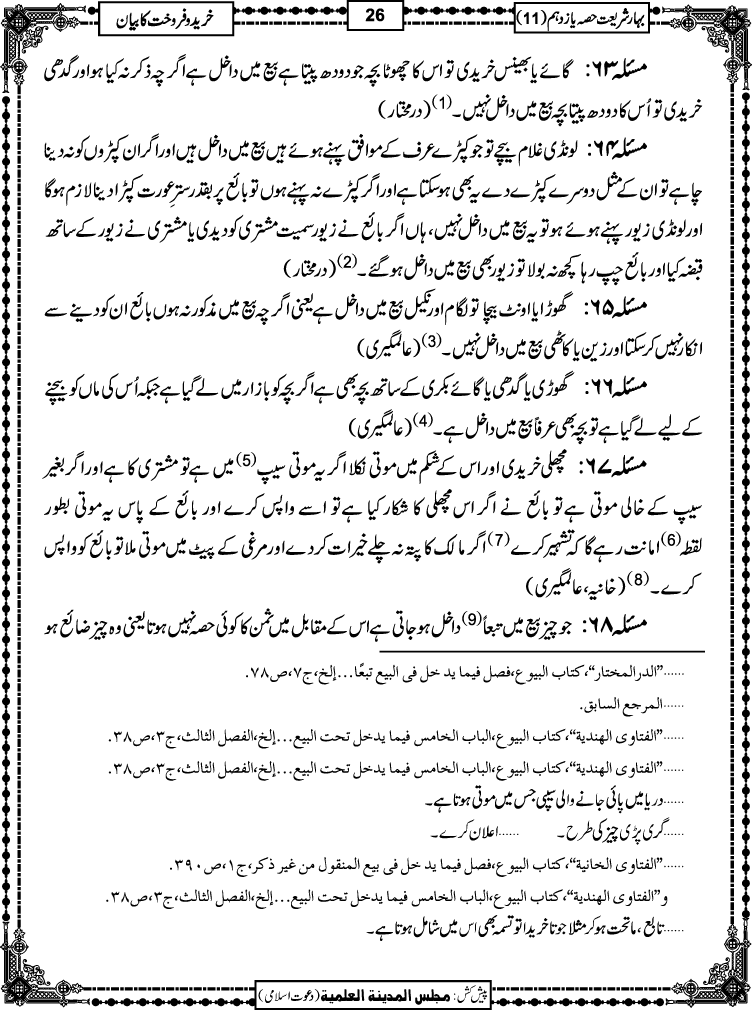 بہارِ شریعت حصہ یازدہم (11)
26
خرید و فروخت کا بیان
مسئلہ ۶۳: گائے یا بھینس خریدی تو اس کا چھوٹا بچہ جو دودھ پیتا ہے بیع میں داخل ہے اگرچہ ذکر نہ کیا ہو اور گدھی
خریدی تو اُس کا دودھ پیتا بچہ بیع میں داخل نہیں۔(1) (درمختار)
مسئلہ ۶۴: لونڈی غلام بیچے تو جو کپڑے عرف کے موافق پہنے ہوئے ہیں بیع میں داخل ہیں اور اگر ان کپڑوں کو نہ دینا
چاہے تو ان کے مثل دوسرے کپڑے دے یہ بھی ہوسکتا ہے اور اگر کپڑے نہ پہنے ہوں تو بائع پر بقدر سترِ عورت کپڑا دینا لازم ہوگا
اور لونڈی زیور پہنے ہوئے ہو تو یہ بیع میں داخل نہیں، ہاں اگر بائع نے زیور سمیت مشتری کو دیدی یا مشتری نے زیور کے ساتھ
قبضہ کیا اور بائع چپ رہا کچھ نہ بولا تو زیور بھی بیع میں داخل ہوگئے۔(2) (درمختار)
مسئلہ ۶۵: گھوڑا یا اونٹ بیچا تو لگام اور نکیل بیع میں داخل ہے یعنی اگرچہ بیع میں مذکور نہ ہوں بائع ان کو دینے سے
انکار نہیں کرسکتا اور زین یا کاٹھی بیع میں داخل نہیں۔(3) (عالمگیری)
مسئلہ ۶۶: گھوڑی یا گدھی یا گائے بکری کے ساتھ بچہ بھی ہے اگر بچہ کو بازار میں لے گیا ہے جبکہ اُس کی ماں کو بیچنے
کے لیے لے گیا ہے تو بچہ بھی عرفاً بیع میں داخل ہے۔(4) (عالمگیری)
مسئلہ ۶۷: مچھلی خریدی اور اس کے شکم میں موتی نکلا اگر یہ موتی سیپ(5) میں ہے تو مشتری کا ہے اور اگر بغیر
سیپ کے خالی موتی ہے تو بائع نے اگر اس مچھلی کا شکار کیا ہے تو اسے واپس کرے اور بائع کے پاس یہ موتی بطور
لقطہ(6) امانت رہے گا کہ تشہیر کرے(7) اگر مالک کا پتہ نہ چلے خیرات کردے اور مرغی کے پیٹ میں موتی ملا تو بائع کو واپس
کرے۔(8) (خانیہ، عالمگیری)
مسئلہ ۶۸: جو چیز بیع میں تبعاً(9) داخل ہوجاتی ہے اس کے مقابل میں ثمن کا کوئی حصہ نہیں ہوتا یعنی وہ چیز ضائع ہو
......"الدرالمختار"، کتاب البیوع، فصل فیما یدخل فی البیع تبعًا...إلخ، ج۷، ص۷۸.
......المرجع السابق.
......"الفتاوی الھندیة"، کتاب البیوع، الباب الخامس فیما یدخل تحت البیع...إلخ، الفصل الثالث، ج۳، ص۳۸.
......"الفتاوی الھندیة"، کتاب البیوع، الباب الخامس فیما یدخل تحت البیع...إلخ، الفصل الثالث، ج۳، ص۳۸.
......دریا میں پائی جانے والی سیپی جس میں موتی ہوتا ہے۔
......گری پڑی چیز کی طرح۔ ......اعلان کرے۔
......"الفتاوی الخانیة"، کتاب البیوع، فصل فیما یدخل فی بیع المنقول من غیر ذکر، ج۱، ص۳۹۰.
و"الفتاوی الھندیة"، کتاب البیوع، الباب الخامس فیما یدخل تحت البیع...إلخ، الفصل الثالث، ج۳، ص۳۸.
......تابع، ماتحت ہوکر مثلا جوتا خریدا تو تسمہ بھی اس میں شامل ہوتا ہے۔
پیش کش: مجلس المدینۃ العلمیۃ (دعوت اسلامی)